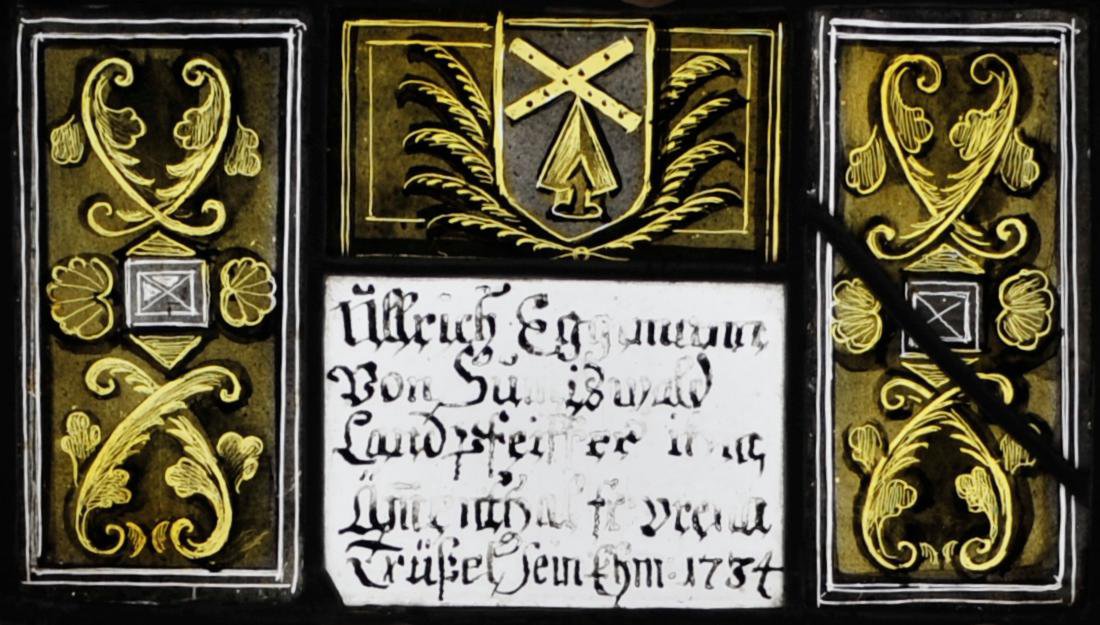 Ůllrich Eggimann
Von Sumiswald
Landpfeiffer im
Ämenthal fr vrena
Trüßel Sein Ehm. 1734